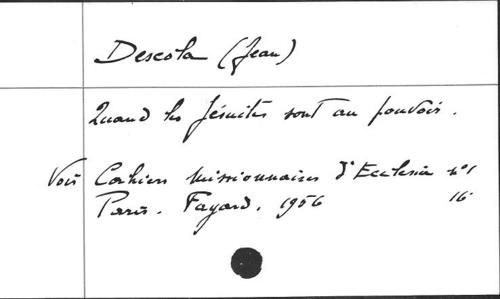 Descola (Jean)
Quand les Jésuites sont au pouvoir.
Voir Cahiers missionnaires d'Ecclesia n°1
Paris. Fayard. 1956 16